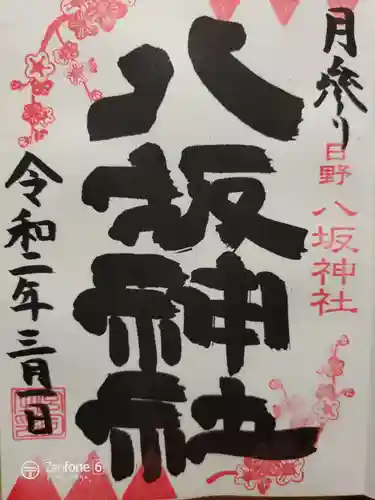 月参り
日野八坂神社
八坂神社
令和二年三月一日
Zenfone 6